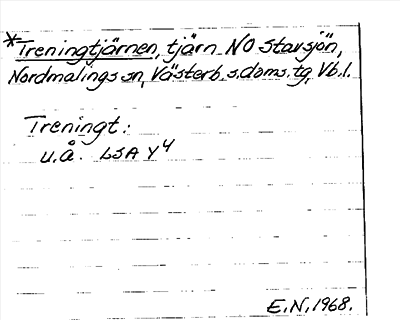 *Treningtjärnen, tjärn NO Stavsjön,
Nordmalings sn, Västerb. s. doms. tg, Vb. l.
Treningt:
u.å. LSA Y4
E.N. 1968.